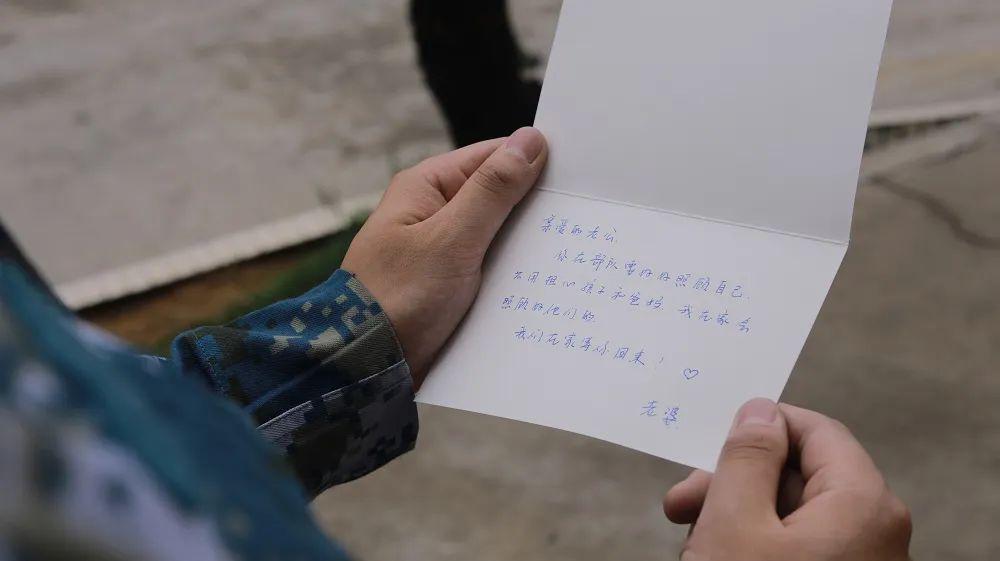 亲爱的老公.
你在部队要好好照顾自己.
不用担心孩子和爸妈. 我在家会
照顾好他们的.
我们在家等你回来! ♡
老婆.